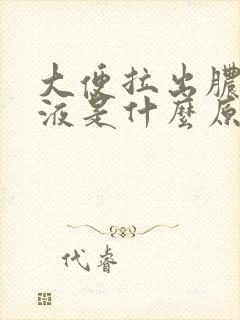 大便拉出膿
液是什麼原
代睿